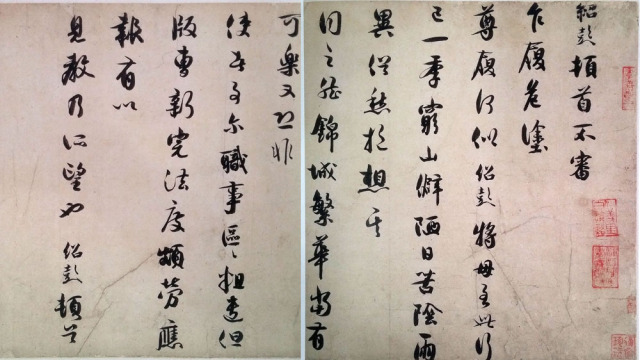 紹彭頓首不審
乍履危塗
尊履何似紹彭將母至此行
已一季窮山僻陋日苦陰雨
異愁想
同之錦城繁華當有
可樂又恐非
使者事爾職事區區粗遣但
版曹新法度頗勞應
報有以
見教乃所望也紹彭頓首